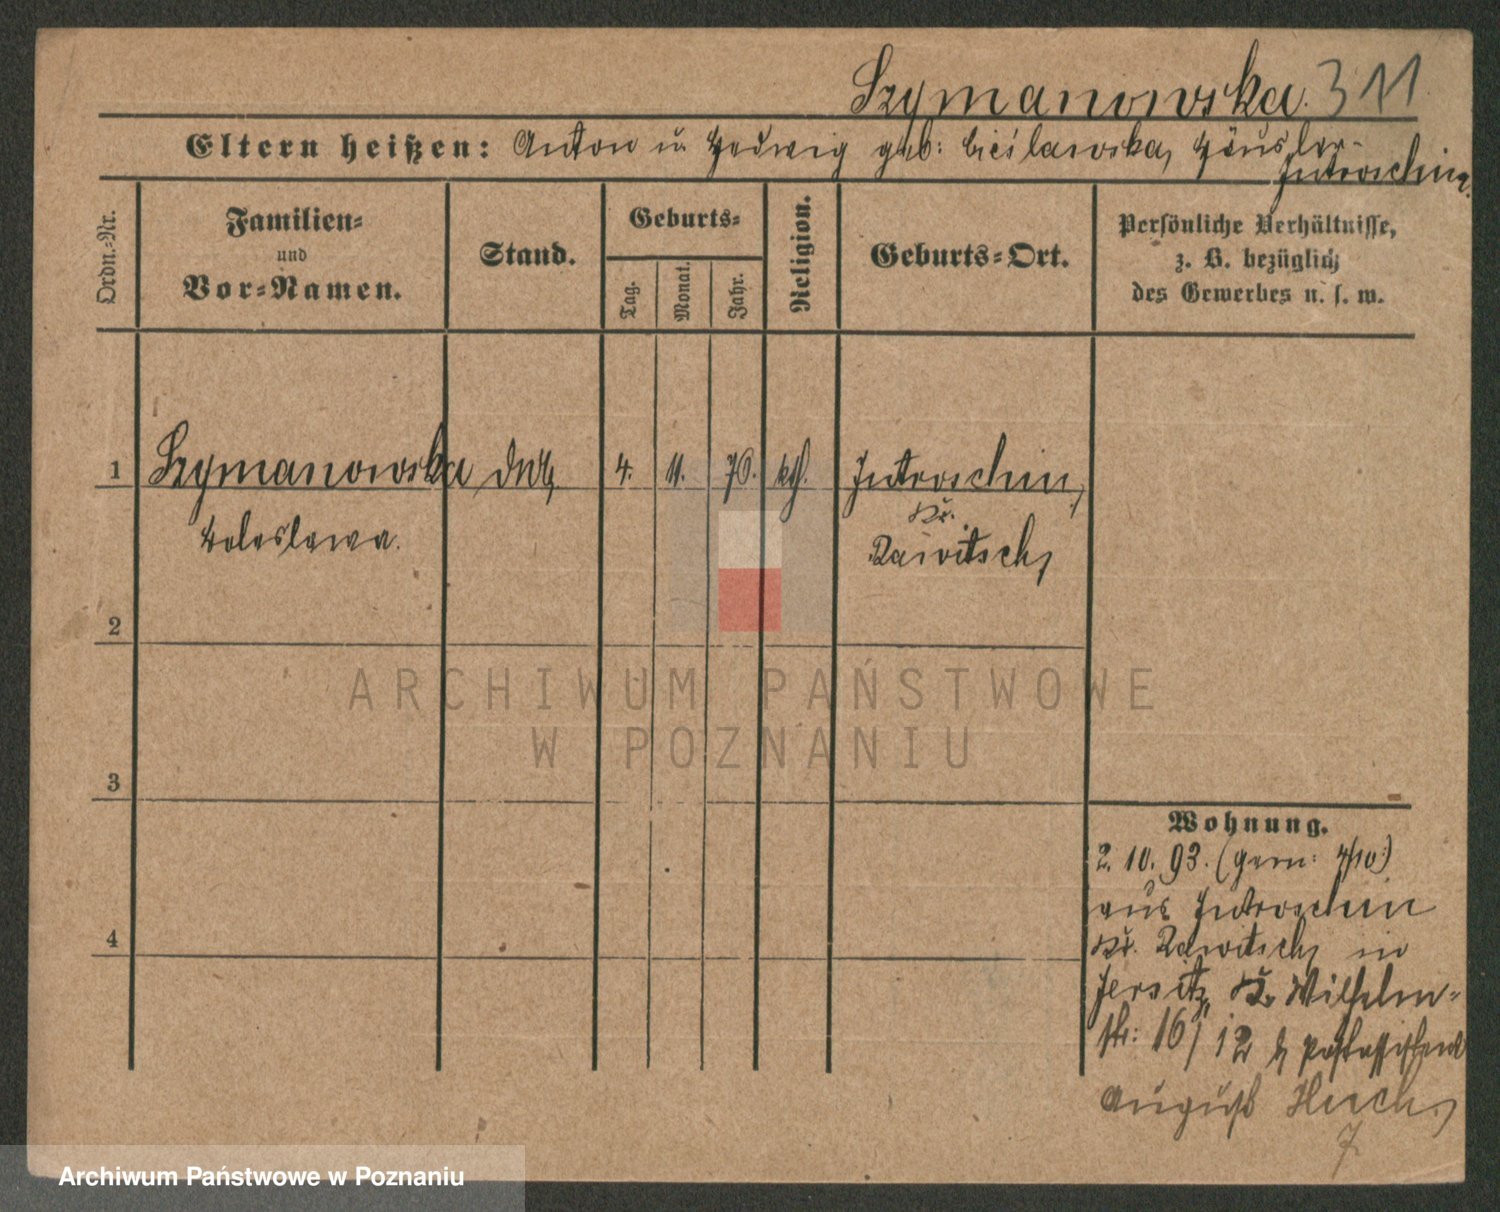 Szymanowska. 311
Eltern heißen: Anton u. Hedwig geb: Cieślawska, Häusler-
Jutroschin.
Ordn.-Nr.
Familien-
und
Vor-Namen.
Stand.
Geburts-
Tag.
Monat.
Jahr.
Religion.
Geburts-Ort.
Persönliche Verhältnisse,
z. B. bezüglich
des Gewerbes u. s. w.
1 Szymanowska 4. 11. 70. kth. Jutroschin,
Boleslawa. Kr.
Rawitsch,
2
3
4
Wohnung.
2. 10. 93. (gem: 4/10.)
aus Jutroschin
Kr. Rawitsch, in
Jersitz, Kr. Wilhelm-
str: 16, 12 b Postassistent
August Hirsch,
7.
ARCHIWUM PAŃSTWOWE
W POZNANIU
Archiwum Państwowe w Poznaniu